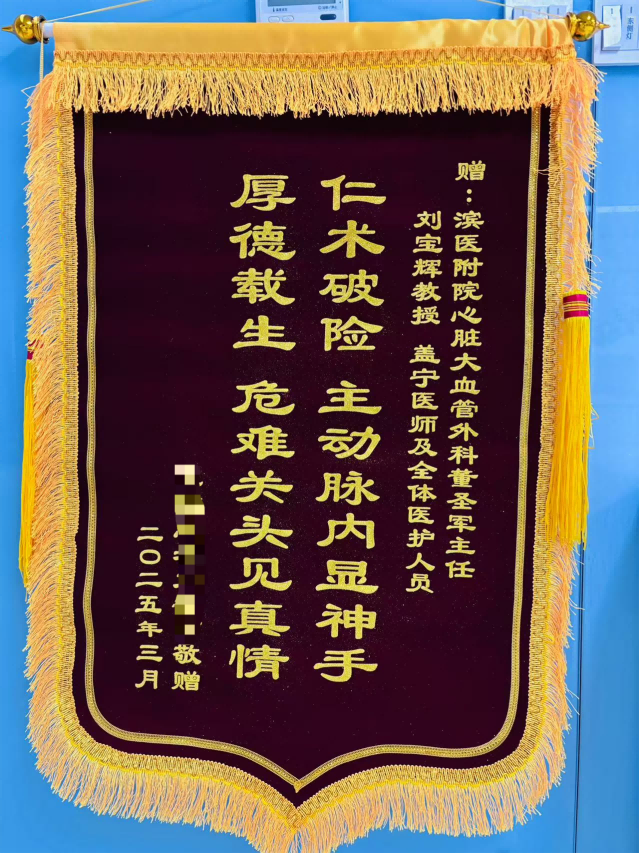 赠：滨医附院心脏大血管外科董圣军主任
刘宝辉教授 盖宁医师及全体医护人员
仁术破险 主动脉内显神手
厚德载生 危难关头见真情
敬赠
二〇二五年三月